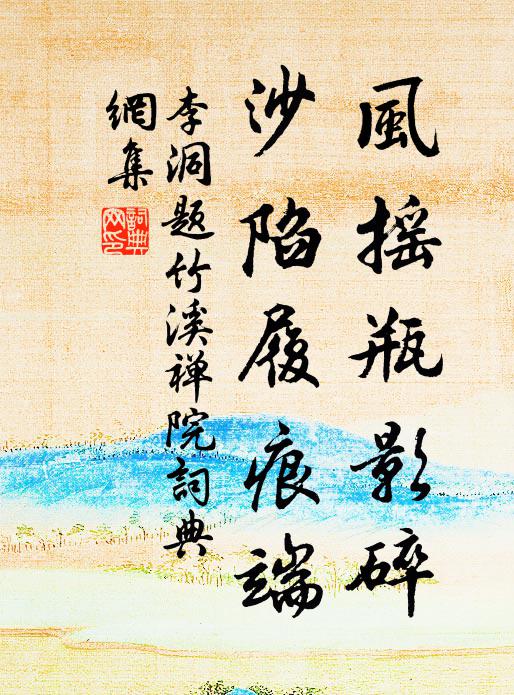 風摇瓶影碎
沙陷履痕端
李洞题竹溪禅院詞典
網集
詞典
网印